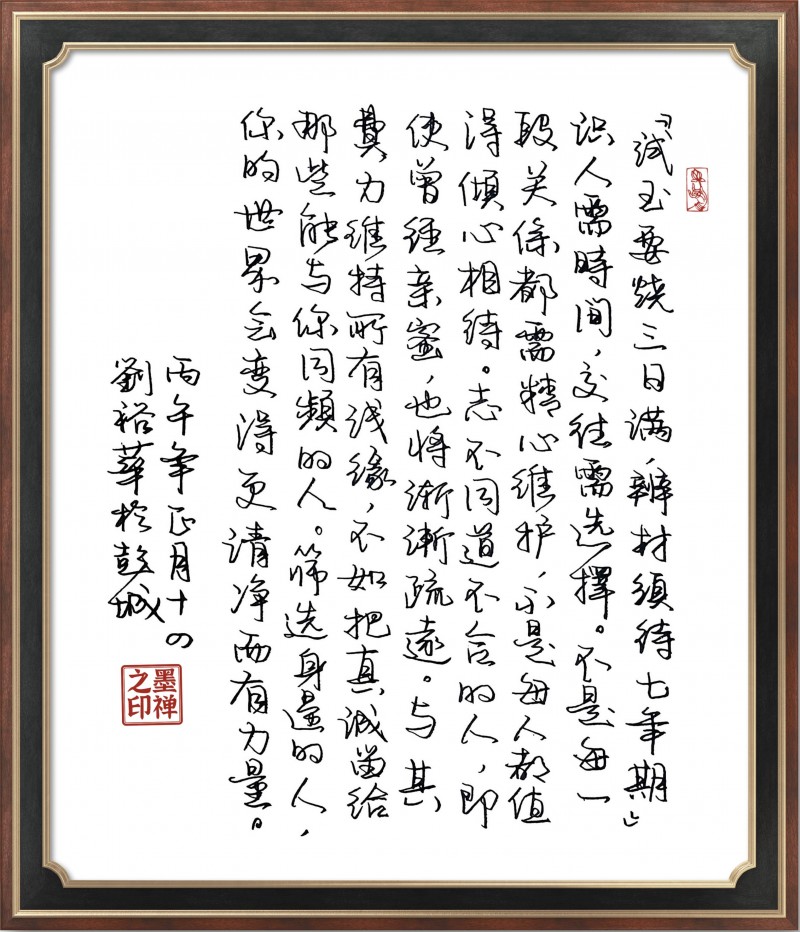 『試玉要烧三日满，辨材须待七年期』
识人需時间，交往需选擇。不是每一
段关係都需精心维护，不是每人都值
得倾心相待。志不同道不合的人，即
使曾经亲密，也将渐渐疏遠。与其
费力维持所有线缘，不如把真诚留给
那些能与你同频的人。筛选身邊的人，
你的世界会变得更清净而有力量。
丙午年正月十四
劉裕華於彭城
墨禅之印